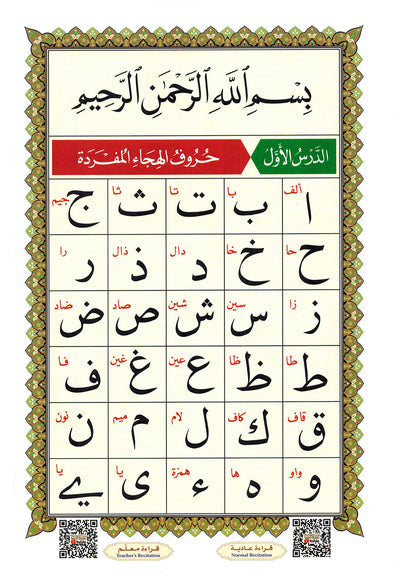 بِسْمِ ٱللَّهِ ٱلرَّحْمَٰنِ ٱلرَّحِيمِ
الدَّرْسُ الأَوَّل حُرُوفُ الهِجَاءِ المُفْرَدَة
ألف ا با ب تا ت ثا ث جيم ج
حا ح خا خ دال د ذال ذ را ر
زا ز سين س شين ش صاد ص ضاد ض
طا ط ظا ظ عين ع غين غ فا ف
قاف ق كاف ك لام ل ميم م نون ن
واو و ها ه همزة ء يا ى يا ے
قراءة عادية قراءة معلم
Normal Recitation Teacher's Recitation